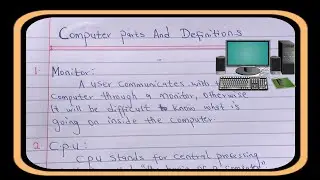 Computer parts And Definitions
1. Monitor:
A user communicates with
computer through a monitor, otherwise
it will be difficult to know what is
going on inside the computer.
2. Cpu:
Cpu stands for central processing